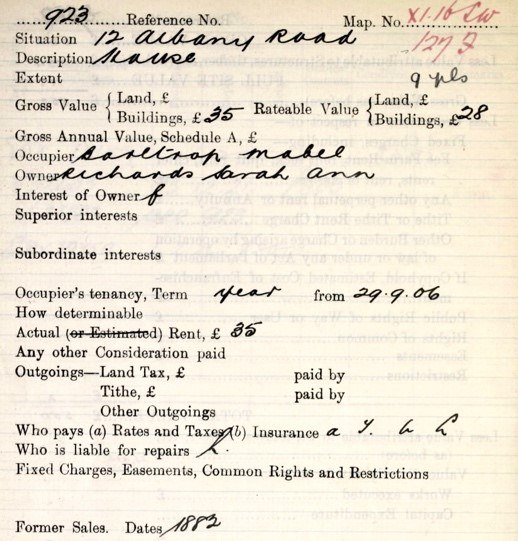 923 Reference No. Map. No. XI.16 SW
127 J
Situation 12 Albany Road
Description House
Extent 9 pls
Gross Value { Land, £ Rateable Value { Land, £
Buildings, £ 35 Buildings, £ 28
Gross Annual Value, Schedule A, £
Occupier Barltrop Mabel
Owner Richards Sarah Ann
Interest of Owner f
Superior interests
Subordinate interests
Occupier's tenancy, Term year from 29.9.06
How determinable
Actual (or Estimated) Rent, £ 35
Any other Consideration paid
Outgoings—Land Tax, £ paid by
Tithe, £ paid by
Other Outgoings
Who pays (a) Rates and Taxes (b) Insurance a T. b L
Who is liable for repairs L.
Fixed Charges, Easements, Common Rights and Restrictions
Former Sales. Dates 1882